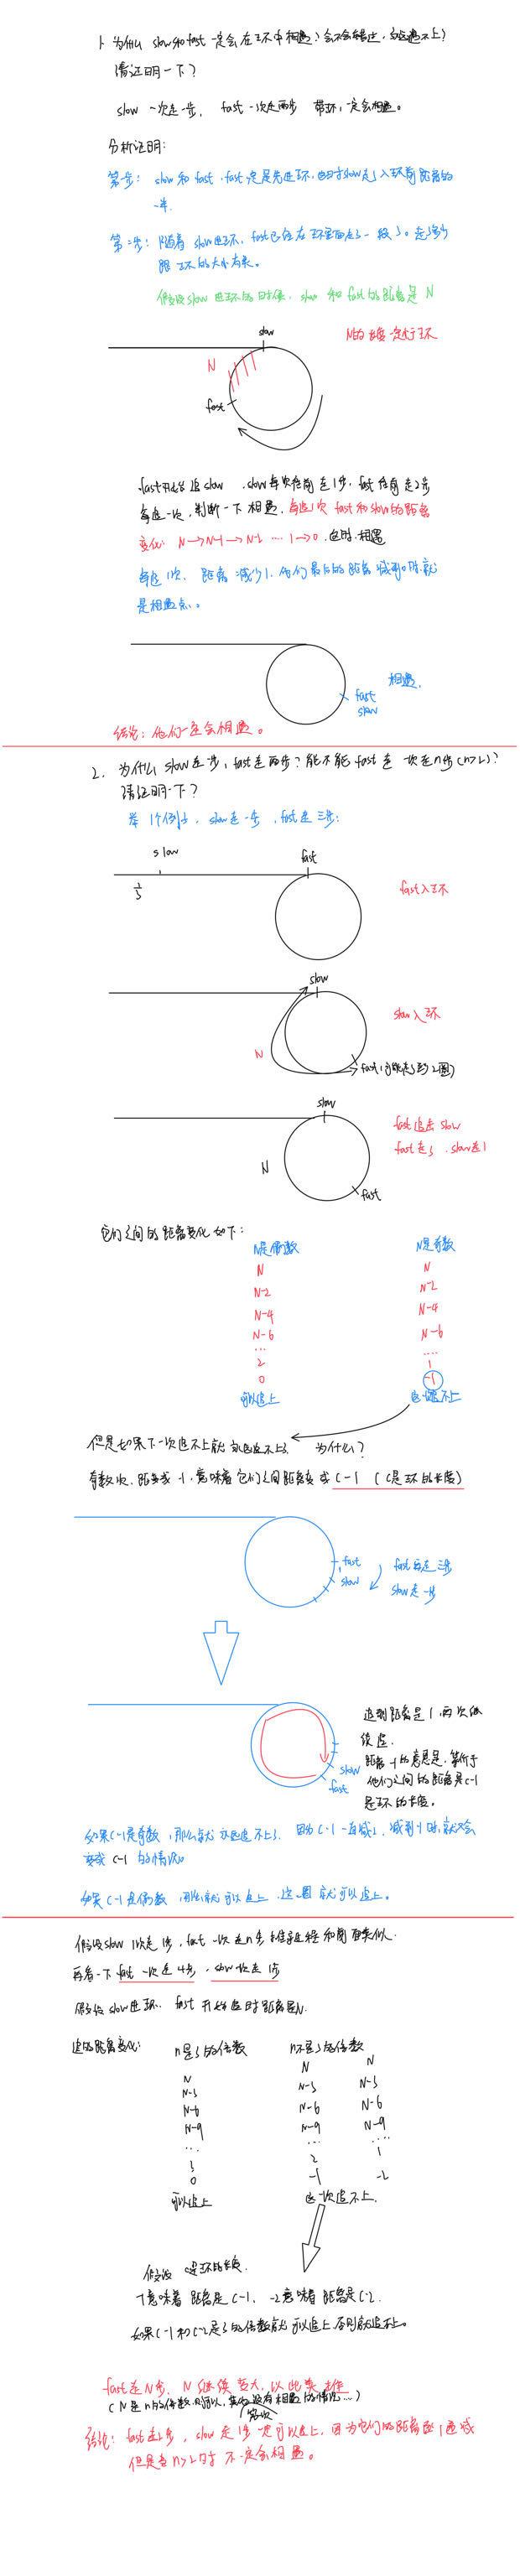 1. 为什么 slow和fast 一定会在环中相遇？会不会错过，永远追不上？
请证明一下？
slow 一次走一步， fast 一次走两步 带环，一定会相遇。
分析证明：
第一步： slow 和 fast，fast 一定是先进环，此时slow走了入环前距离的
一半.
第二步： 随着 slow进环，fast已经在环里面走了一段了。走多少
跟环的大小有关。
假设slow 进环的时候，slow 和 fast的距离是 N
slow
N的长度一定小于环
N
fast
fast开始追slow ，slow每次往前走1步，fast 往前走2步
每追一次，判断一下相遇，每追1次 fast和slow的距离
变化: N→N-1→N-2 … 1→0 ，此时，相遇
每追1次，距离减少1，他们最后的距离减到0时，就
是相遇点。
相遇.
fast
slow
结论: 他们一定会相遇。
2. 为什么 slow走一步，fast走两步？能不能 fast 走 一次走n步(n>2)？
请证明一下？
举个例子，slow走一步，fast走三步:
slow
fast
1/3
fast入环
slow
slow入环
N
fast(可能走了1到2圈)
slow
fast追击 slow
fast走3，slow走1
N
fast
它们之间的距离变化如下：
N是偶数 N是奇数
N N
N-2 N-2
N-4 N-4
N-6 N-6
… …
2 1
0 -1
可以追上 这一次追不上
但是如果下一次追不上就永远追不上了 为什么？
奇数次，距离变成 -1，意味着它们之间距离变成 C-1 (C是环的长度)
fast
slow
fast再走三步
slow走一步
追到距离是1，再次继
续追.
距离-1的意思是，等价于
他们之间的距离是C-1
C是环的长度。
slow
fast
如果C-1是奇数，那么就永远追不上了. 因为C-1一直减2，减到-1时，就又会
变成 C-1 的情况。
如果 C-1是偶数，那么就可以追上，这一圈就可以追上。
假设slow 1次走1步，fast 一次走n步，推导过程和前面类似.
再看一下 fast 一次走4步，slow一次走1步
假设slow进环，fast 开始追时距离是N.
追的距离变化: n是3的倍数 n不是3的倍数
N N N
N-3 N-3 N-3
N-6 N-6 N-6
N-9 N-9 N-9
… … …
3 2 1
0 -1 -2
可以追上 这一次追不上.
假设 C是环的长度.
-1意味着 距离是 C-1， -2意味着距离是C-2.
如果C-1和C-2是3的倍数就可以追上，否则就追不上。
fast走N步，N继续变大，以此类推
结论: fast走2步，slow走1步一定可以追上，因为它们的距离逐1递减
但是当n>2时 不一定会相遇。